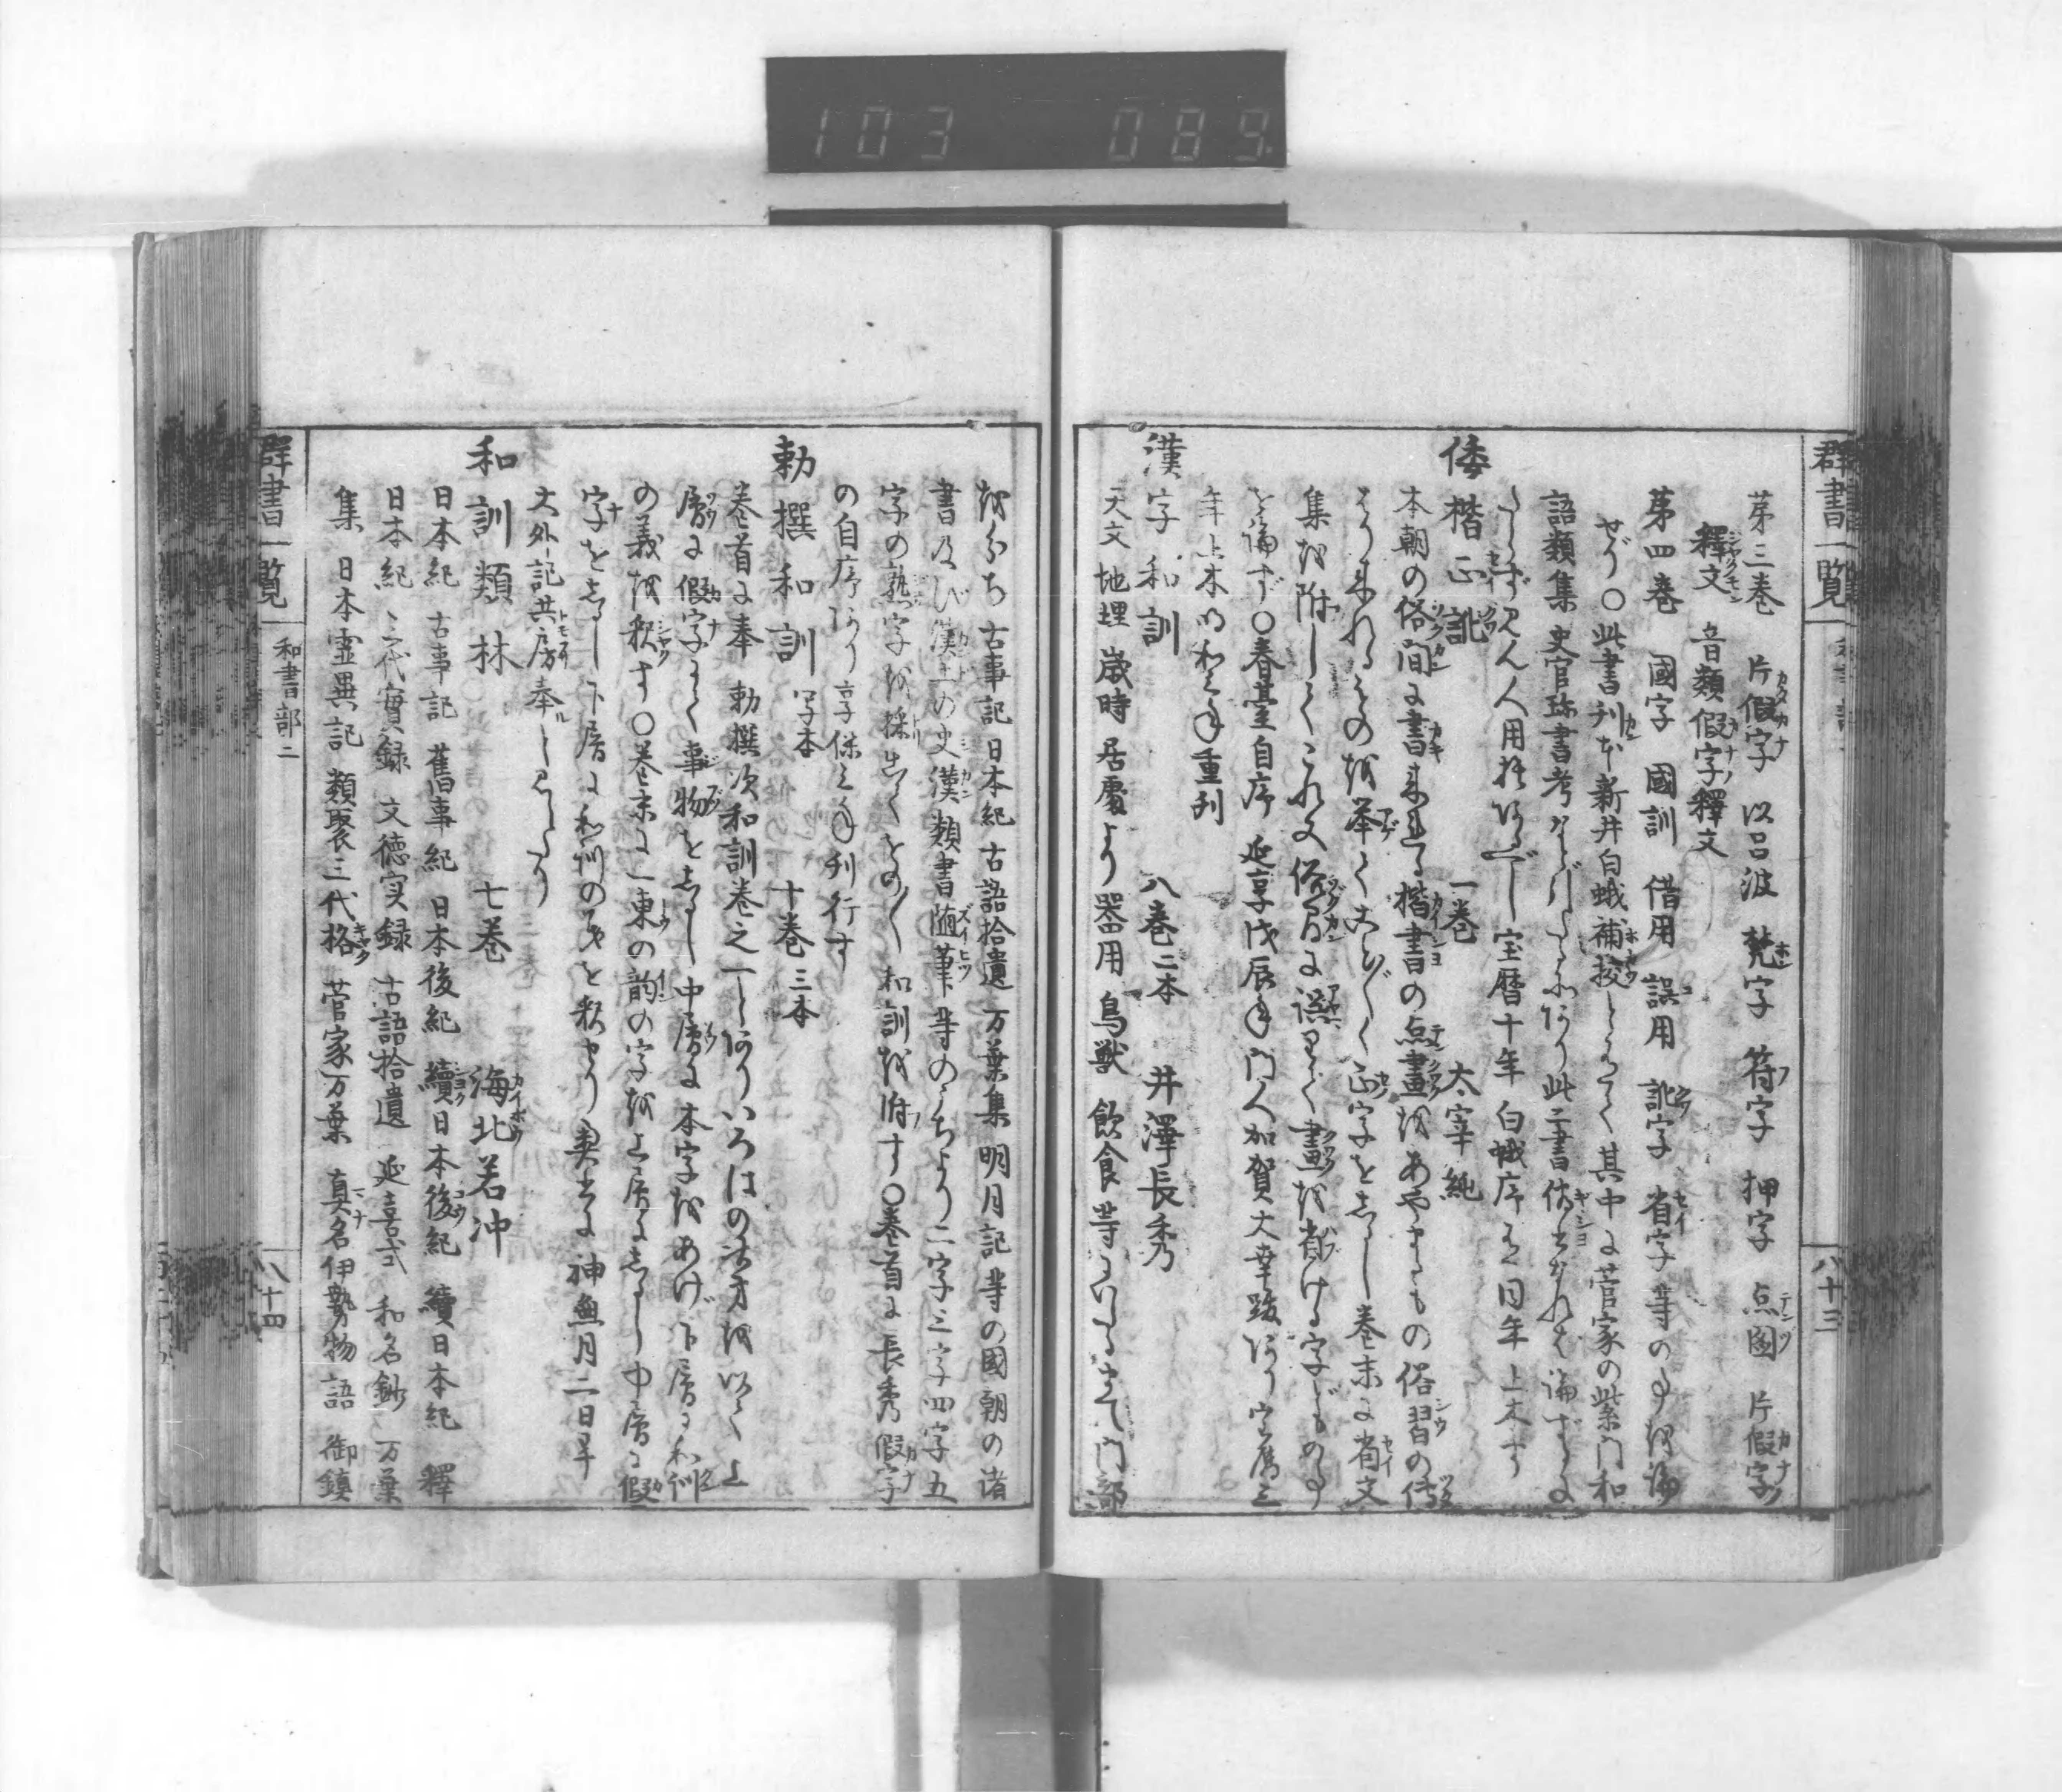 103 089
群書一覧
八十三
第三巻 片假字 以呂波 梵字 符字 押字 点圖 片假字
釋文 音類假字釋文
第四巻 國字 國訓 借用 誤用 訛字 省字 等の事を論
せり○此書刊本新井白蛾補挍とありて其中に菅家の紫門和
語類集 史官珠書考
人用捨あるべし宝暦十年白蛾序有同年上木す
倭楷正訛 一巻 太宰純
本朝の俗間に書来れる楷書の点畫をあやまりもの俗習の傳
はり来れるものを挙てことごとく正字をしるし巻末に省文
集を附してこれ又俗間に誤りて畫を省ける字どもの事
を論ず○春臺自序 延享戊辰年門人加賀大幸跋あり宝暦三
年上木明和三年重刊
漢字和訓 八巻二本 井澤長秀
天文 地理 歳時 居處より器用 鳥獣 飲食等にいたるまで門部
をわかち古事記日本紀古語拾遺万葉集明月記等の國朝の諸
書及び漢土の史漢類書随筆等のうちより二字三字四字五
字の熟字を採出てその和訓を附す○巻首に長秀假字
の自序あり享保三年刊行す
勅撰和訓 写本 十巻三本
巻首に奉 勅撰次和訓巻之一とありいろはの次第を以て上
層に假字にて事物をしるし中層に本字をあげ下層に和訓
の義を釈す○巻末に一東の韵の字を上層にしるし中層に假
字をしるし下層に和訓の義を釈せり奥書に神無月二日早
大外記共房奉しるしたり
和訓類林 七巻 海北若冲
日本紀 古事記 舊事紀 日本後紀 續日本後紀 續日本紀 釋
日本紀 三代實録 文徳実録 古語拾遺 延喜式 和名鈔 万葉
集 日本霊異記 類聚三代格 菅家万葉 真名伊勢物語 御鎮
群書一覧
和書部二
八十四